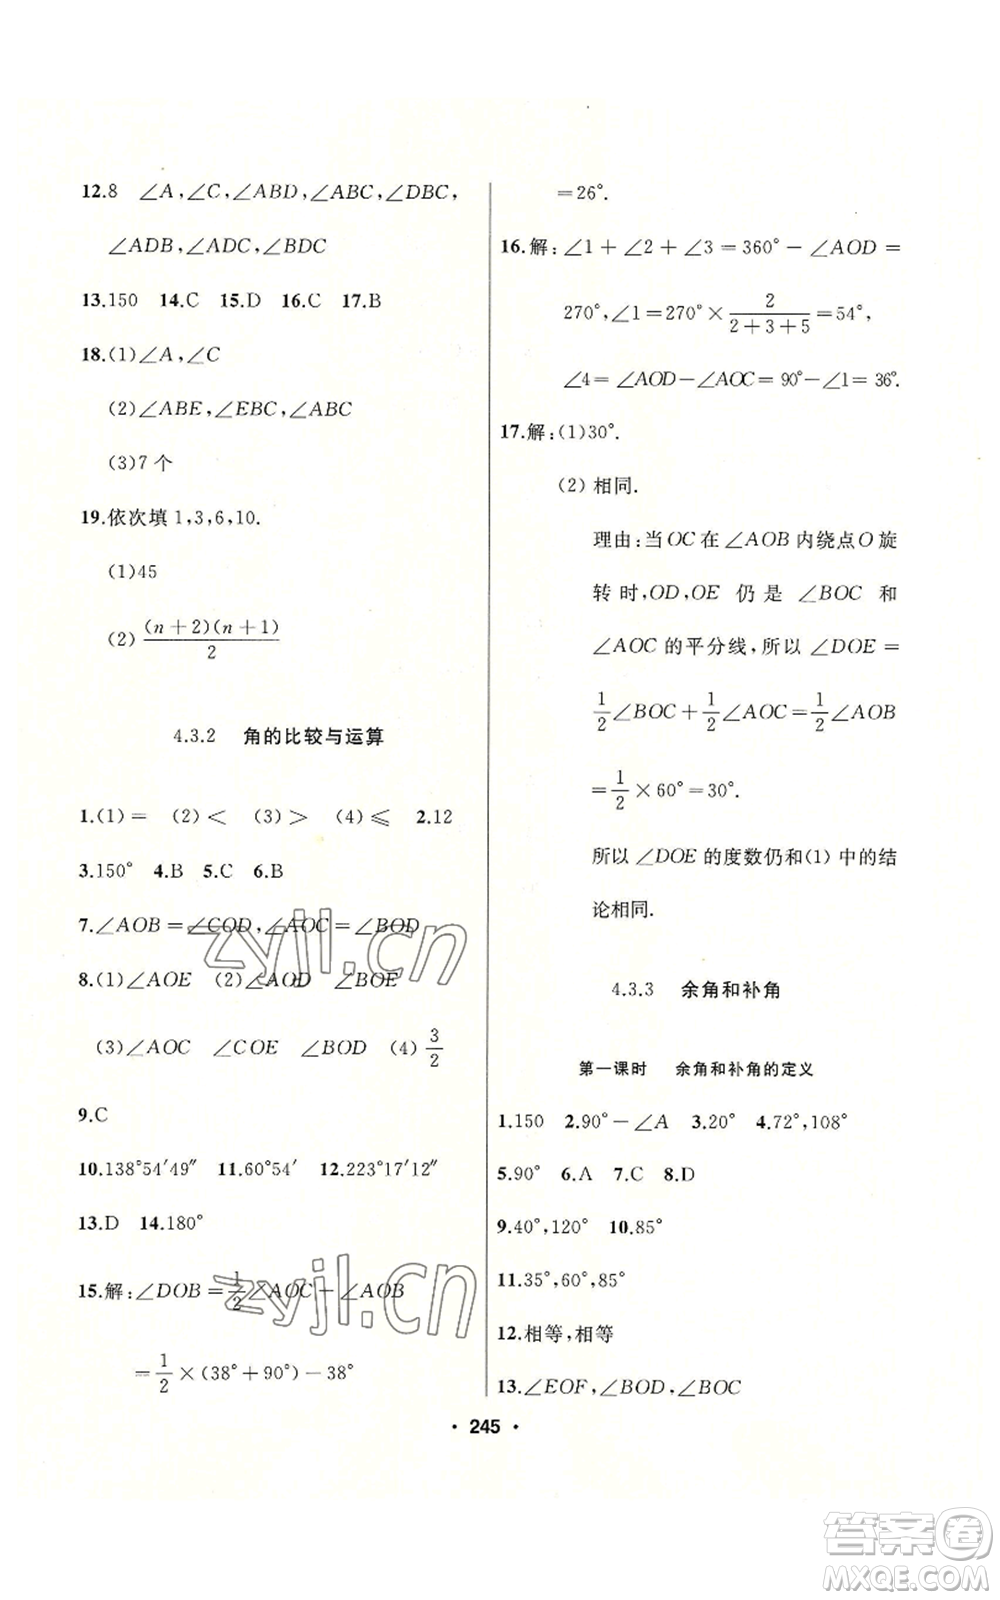 12.8 ∠A,∠C,∠ABD,∠ABC,∠DBC,
∠ADB,∠ADC,∠BDC
13.150 14.C 15.D 16.C 17.B
18.(1)∠A,∠C
(2)∠ABE,∠EBC,∠ABC
(3)7个
19.依次填1,3,6,10.
(1)45
(2)(n+2)(n+1)/2
4.3.2 角的比较与运算
1.(1)= (2)< (3)> (4)⩽ 2.12
3.150° 4.B 5.C 6.B
7.∠AOB=∠COD,∠AOC=∠BOD
8.(1)∠AOE (2)∠AOD ∠BOE
(3)∠AOC ∠COE ∠BOD (4)3/2
9.C
10.138°54′49″ 11.60°54′ 12.223°17′12″
13.D 14.180°
15.解:∠DOB=1/2∠AOC-∠AOB
=1/2×(38°+90°)-38°
=26°.
16.解:∠1+∠2+∠3=360°-∠AOD=
270°,∠1=270°×2/(2+3+5)=54°,
∠4=∠AOD-∠AOC=90°-∠1=36°.
17.解:(1)30°.
(2)相同.
理由:当OC在∠AOB内绕点O旋
转时,OD,OE仍是∠BOC和
∠AOC的平分线,所以∠DOE=
1/2∠BOC+1/2∠AOC=1/2∠AOB
=1/2×60°=30°.
所以∠DOE的度数仍和(1)中的结
论相同.
4.3.3 余角和补角
第一课时 余角和补角的定义
1.150 2.90°-∠A 3.20° 4.72°,108°
5.90° 6.A 7.C 8.D
9.40°,120° 10.85°
11.35°,60°,85°
12.相等,相等
13.∠EOF,∠BOD,∠BOC
• 245 •
zyjl.cn
zyjl.cn
答案卷
MXQE.COM